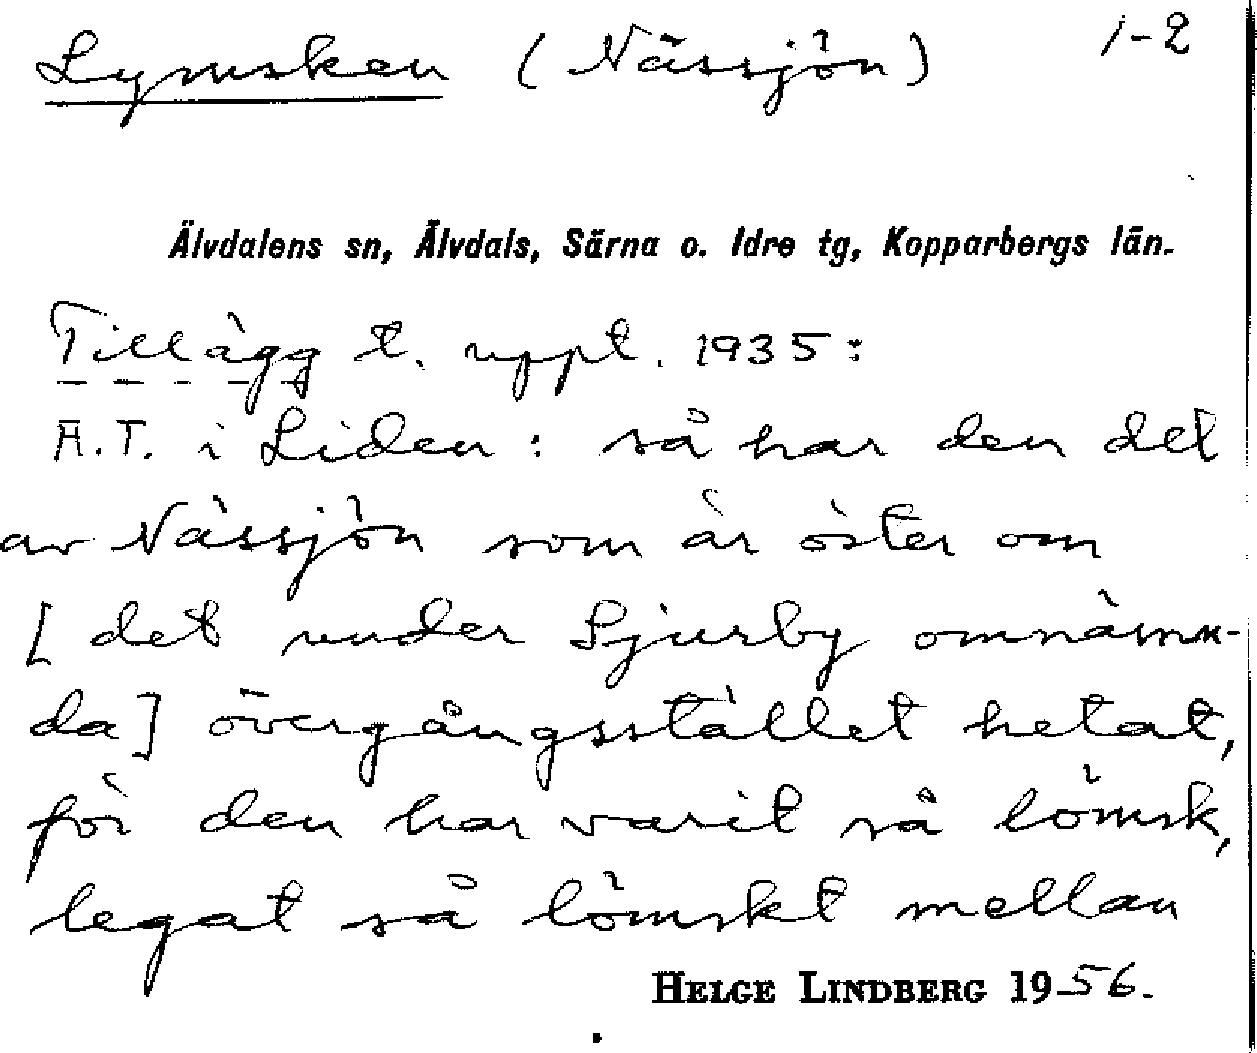 Lymsken (Nässjön) 1-2
Älvdalens sn, Älvdals, Särna o. Idre tg, Kopparbergs län.
Tillägg t. uppt. 1935:
A.T. i Liden: så har den del
av Nässjön som är öster om
[det under Sjurby omnämn-
da] övergångsstället hetat,
för den har varit så lömsk,
legat så lömskt mellan
HELGE LINDBERG 1956.